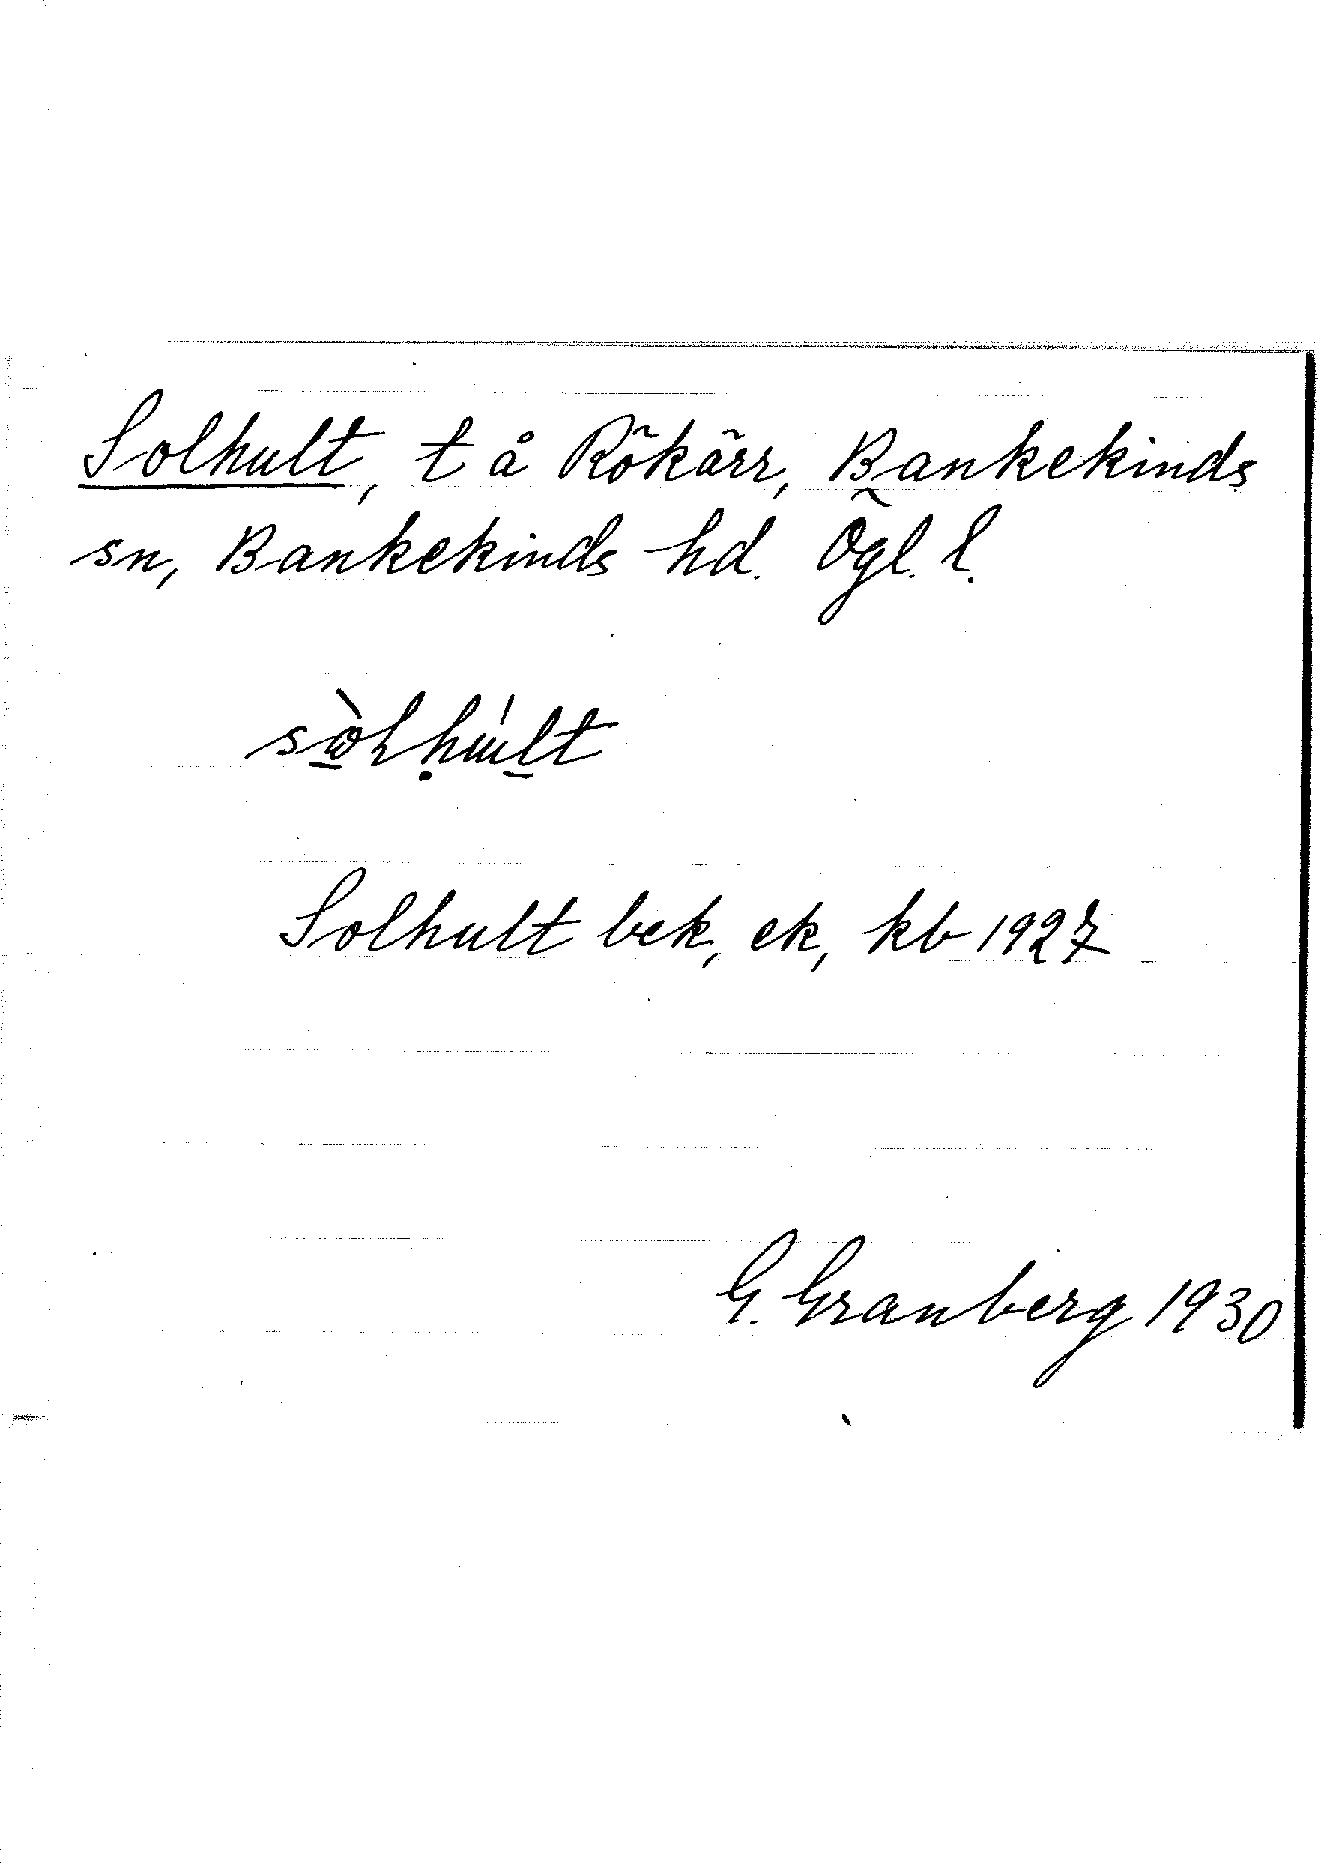 Solhult, t å Rökärr, Bankekinds
sn, Bankekinds hd. Ögl. l.
Solhult bek, ek, kb 1927
G. Granberg 1930